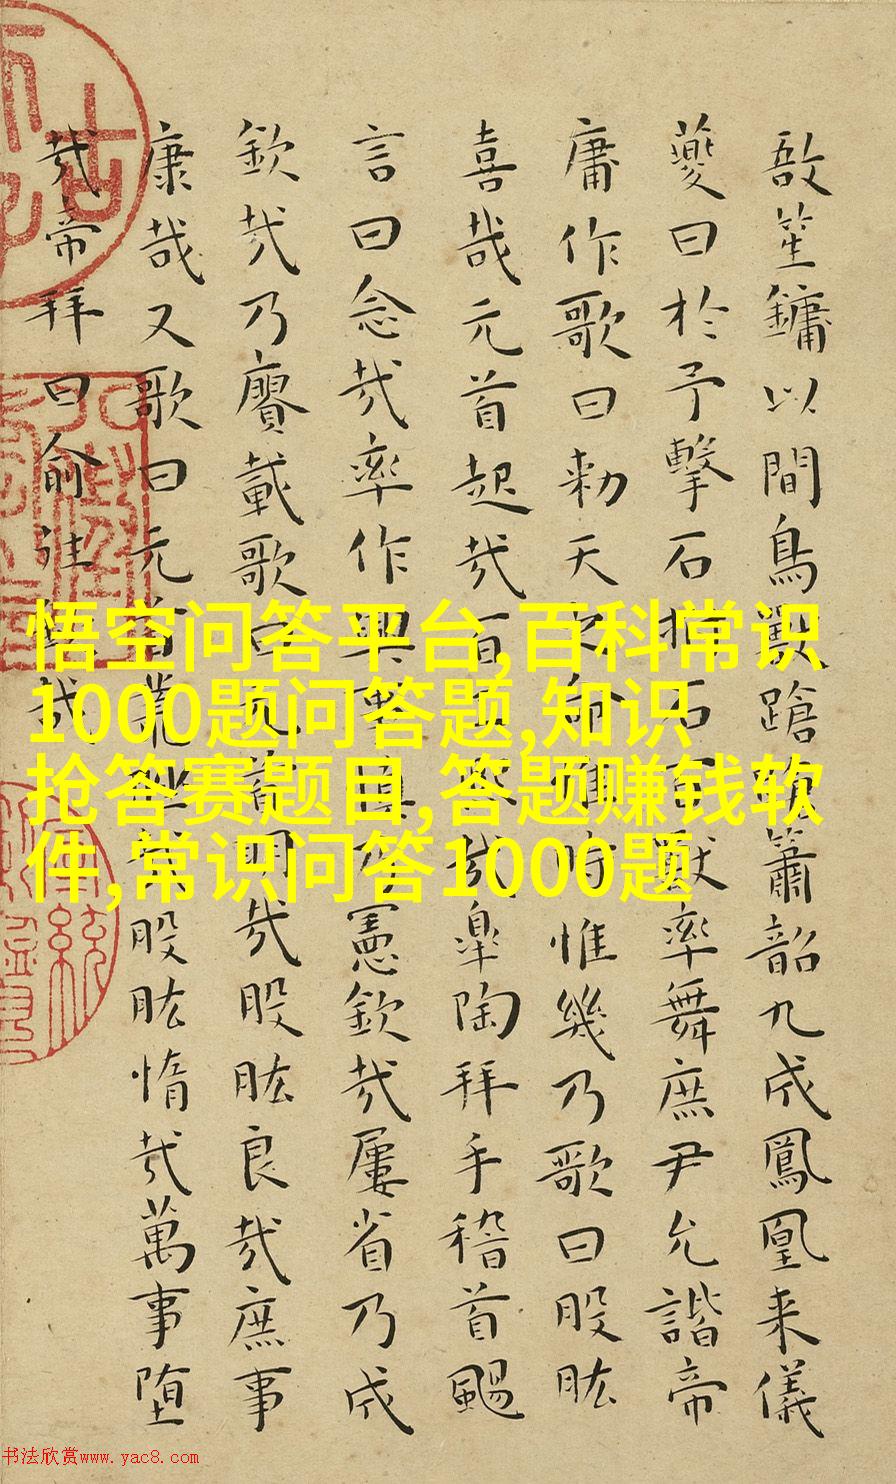 敔笙鏞以間鳥獸蹌蹌簫韶九成鳳凰来儀
夔曰於予擊石拊石百獸率舞庶尹允諧帝
庸作歌曰勑天之命惟時惟幾乃歌曰股肱
喜哉元首起哉百工熙哉皐陶拜手稽首颺
言曰念哉率作興事慎乃憲欽哉屢省乃成
欽哉乃賡載歌曰元首明哉股肱良哉庶事
康哉又歌曰元首叢脞哉股肱惰哉萬事堕
哉帝拜曰俞往欽哉
悟空问答平台,百科常识
1000题问答题,知识
抢答赛题目,答题赚钱软
件,常识问答1000题
书法欣赏www.yac8.com